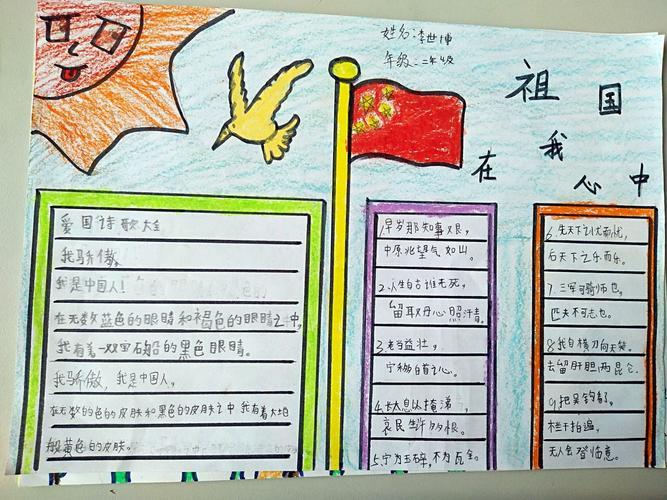 姓名:李世博
年级:二年级
祖国
在我心中
爱国诗歌大全
我骄傲,
我是中国人!
在无数蓝色的眼睛和褐色的眼睛之中,
我有着一双宝石般的黑色眼睛。
我骄傲,我是中国人,
在无数的色的皮肤和黑色的皮肤之中 我有着大地
般黄色的皮肤。
1.早岁那知事艰,
中原北望气如山。
2.人生自古谁无死,
留取丹心照汗青。
3.老当益壮,
宁移白首之心。
4.长太息以掩涕,
哀民生之多艰。
5.宁为玉碎,不为瓦全。
6.先天下之忧而忧,
后天下之乐而乐。
7.三军可夺帅也,
匹夫不可志也。
8.我自横刀向天笑,
去留肝胆两昆仑。
9.把吴钩看了,
栏干拍遍,
无人会登临意。